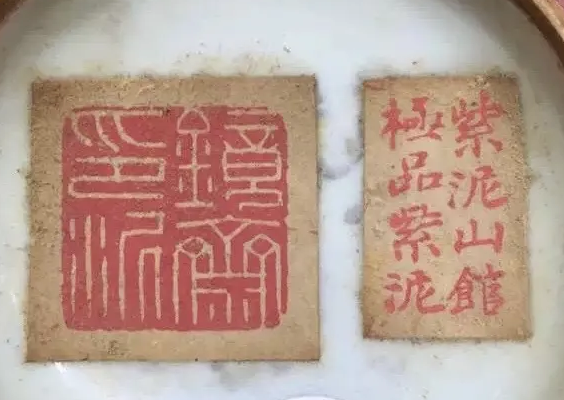 紫泥山館
極品紫泥
鏡齋
印泥